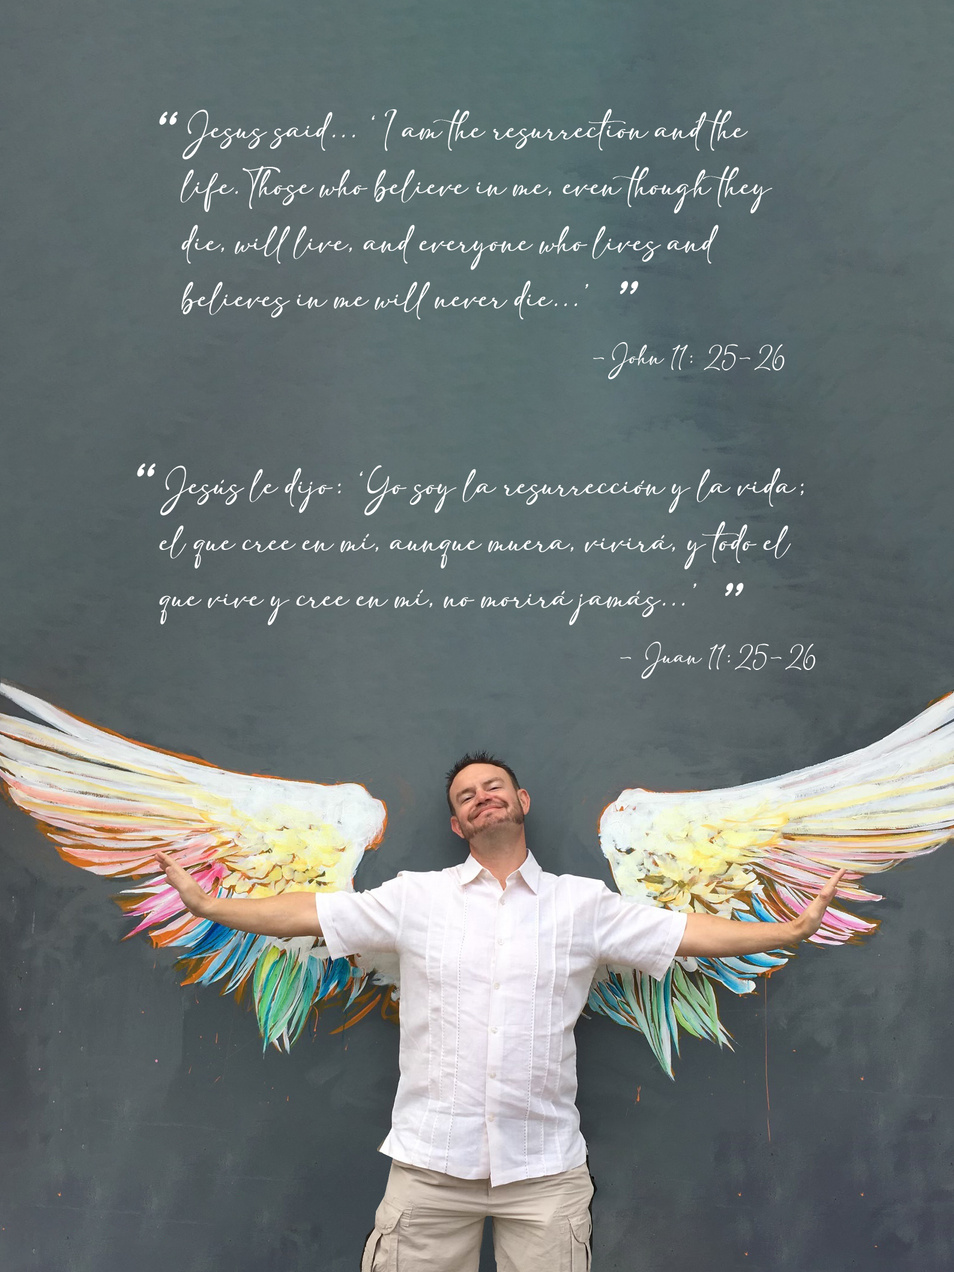 “ Jesus said... ‘I am the resurrection and the
life. Those who believe in me, even though they
die, will live, and everyone who lives and
believes in me will never die...’ ”
- John 11: 25-26
“ Jesús le dijo: ‘Yo soy la resurrección y la vida;
el que cree en mí, aunque muera, vivirá, y todo el
que vive y cree en mí, no morirá jamás...’ ”
- Juan 11:25-26